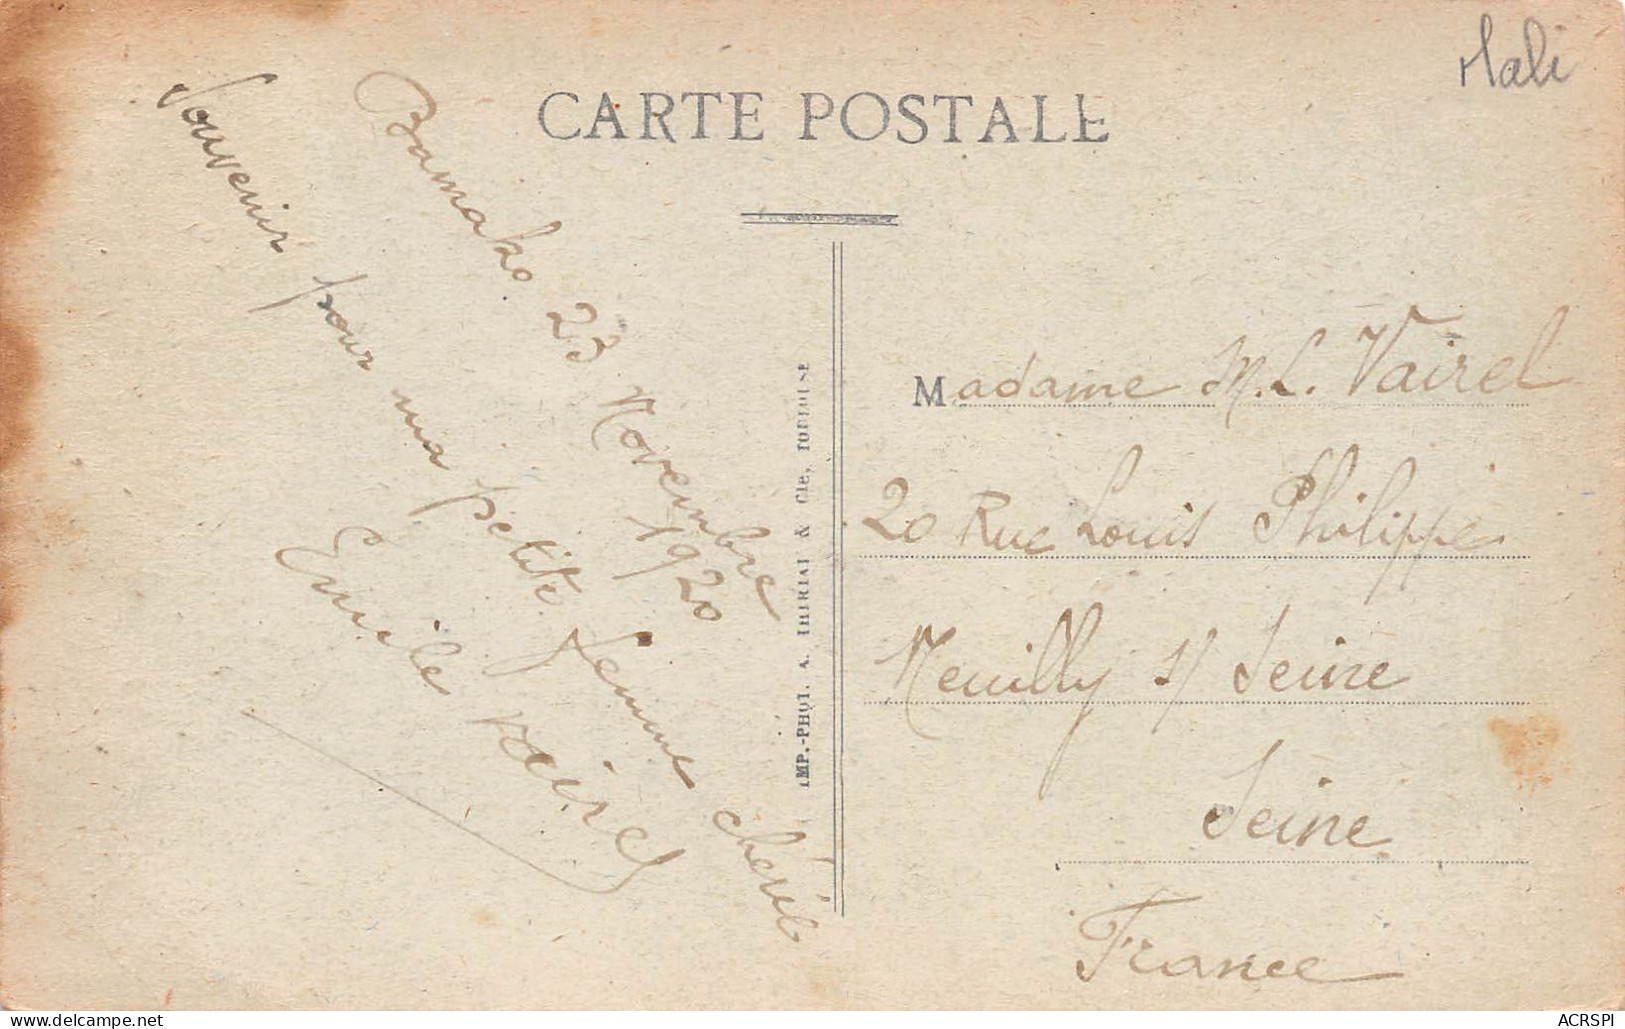 Mali
CARTE POSTALE
Bamako 23 Novembre
1920
Souvenir pour ma petite femme chérie
Emile Vairel
IMP.-PHOT. A. THIRIAT & Cie, TOULOUSE
Madame M. L. Vairel
20 Rue Louis Philippe
Neuilly s/ Seine
Seine
France
delcampe.net
ACRSPI